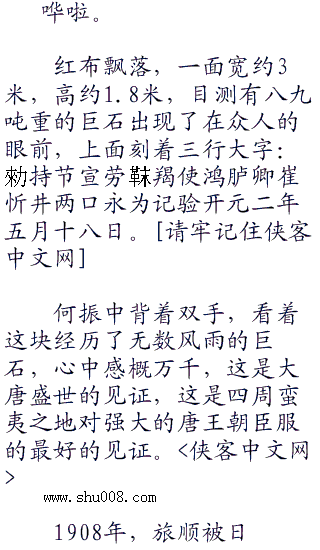 哗啦。
红布飘落，一面宽约3
米，高约1.8米，目测有八九
吨重的巨石出现了在众人的
眼前，上面刻着三行大字：
勑持节宣劳靺羯使鸿胪卿崔
忻井两口永为记验开元二年
五月十八日。[请牢记住侠客
中文网]
何振中背着双手，看着
这块经历了无数风雨的巨
石，心中感概万千，这是大
唐盛世的见证，这是四周蛮
夷之地对强大的唐王朝臣服
的最好的见证。<侠客中文网
>
www.shu008.com
1908年，旅顺被日